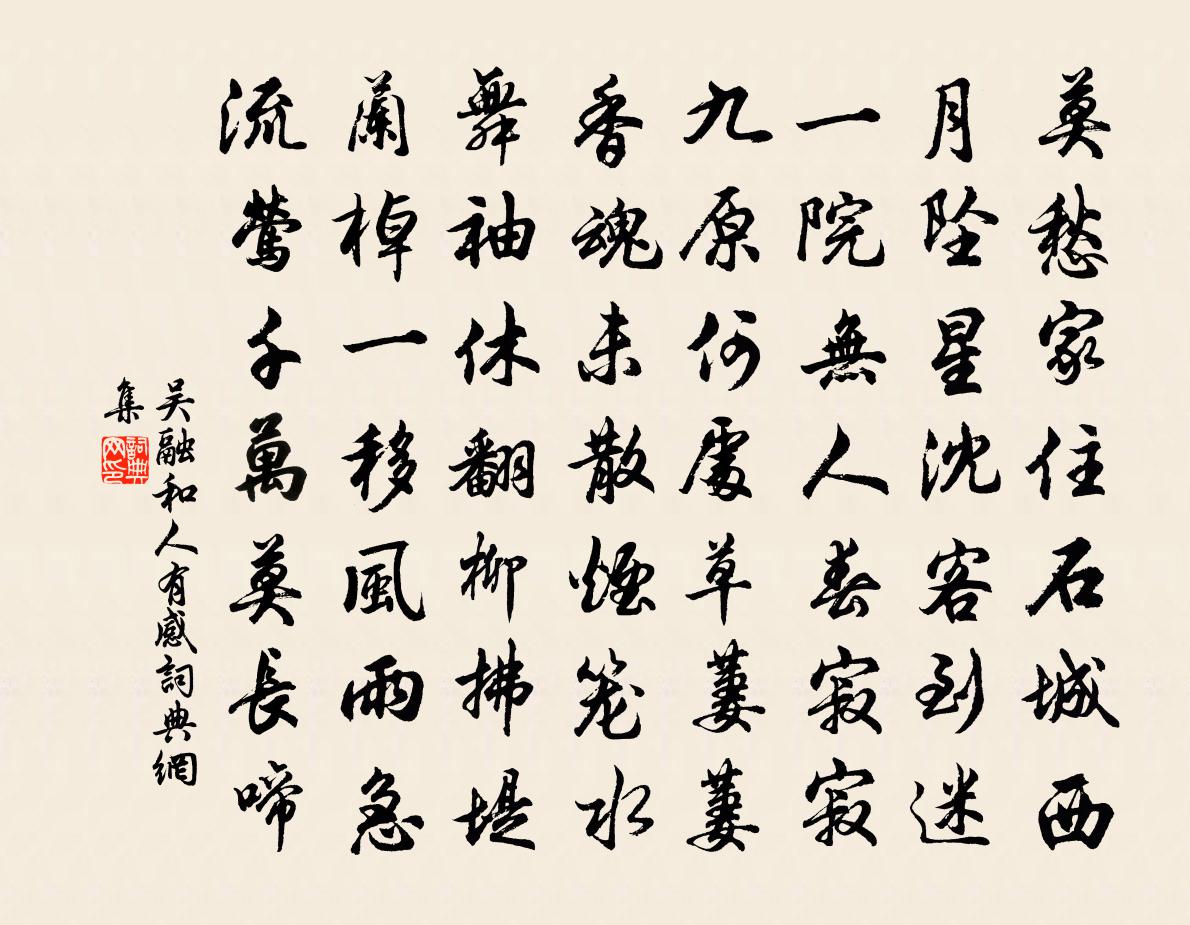 莫愁家住石城西
月墜星沈客到迷
一院無人春寂寂
九原何處草萋萋
香魂未散煙笼水
舞袖休翻柳拂堤
蘭棹一移風雨急
流鶯千萬莫長啼
吴融和人有感詞典網
集
詞典
网印